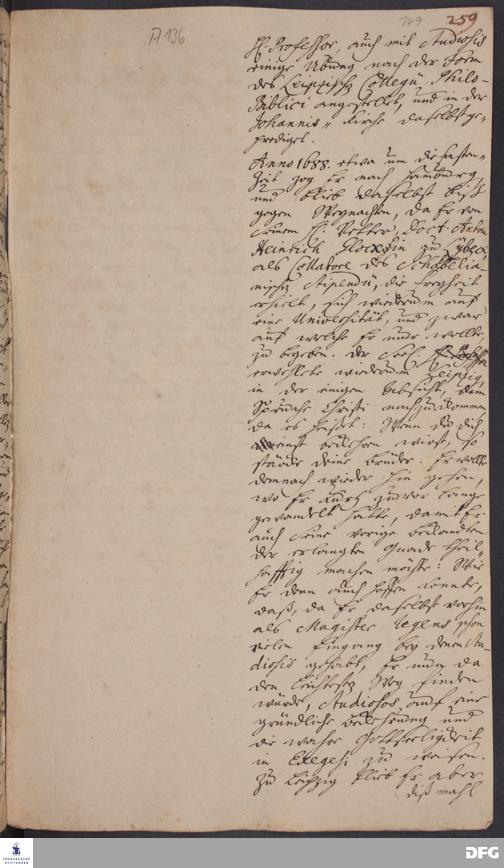 A 136
147 259
H. Professor, auch mit Studiosis
einige Ubung nach der Form
des Leipzisch. Collegii Philo-
Biblici angestellet, und in der
Johannis-Kirche daselbst ge-
prediget.
Anno 1688. etwa um die Fasten-
Zeit zog Er nach Hamburg,
und blieb daselbst biß
gegen Weynachten, da Er von
seinem H. Vetter, Doct. Anton
Heinrich Gloxin zu Lübeck,
als Collatore des Schabbelia-
nischen Stipendii, die Freyheit
erhielt, sich wiederum auf
eine Universität, und zwar
auf welche Er nur wollte,
zu begeben. Der Seel. H. Professor
erwehlete wiederum Leipzig,
in der einigen Absicht, dem
Spruche Christi nachzukommen
da es heisset: Wenn du dich
einst bekehren wirst, so
stärcke deine Brüder. Er wollte
demnach wieder hin gehen,
wo Er kurtz zuvor lange
gewandelt hatte, damit Er
auch seine vorige Bekandten
der erlangten Gnade theil-
hafftig machen möchte: Wie
Er denn auch hoffen konnte,
daß, da Er daselbst vorhin
als Magister legens schon
vielen Eingang bey denen Stu-
diosis gehabt, Er nun da
den leichtesten Weg finden
würde, Studiosos auf eine
gründliche Bekehrung und
die wahre Gottseeligkeit
in Exegesi zu weisen.
Zu Leipzig blieb Er aber
diß mahl
FRANCKESCHE STIFTUNGEN
DFG